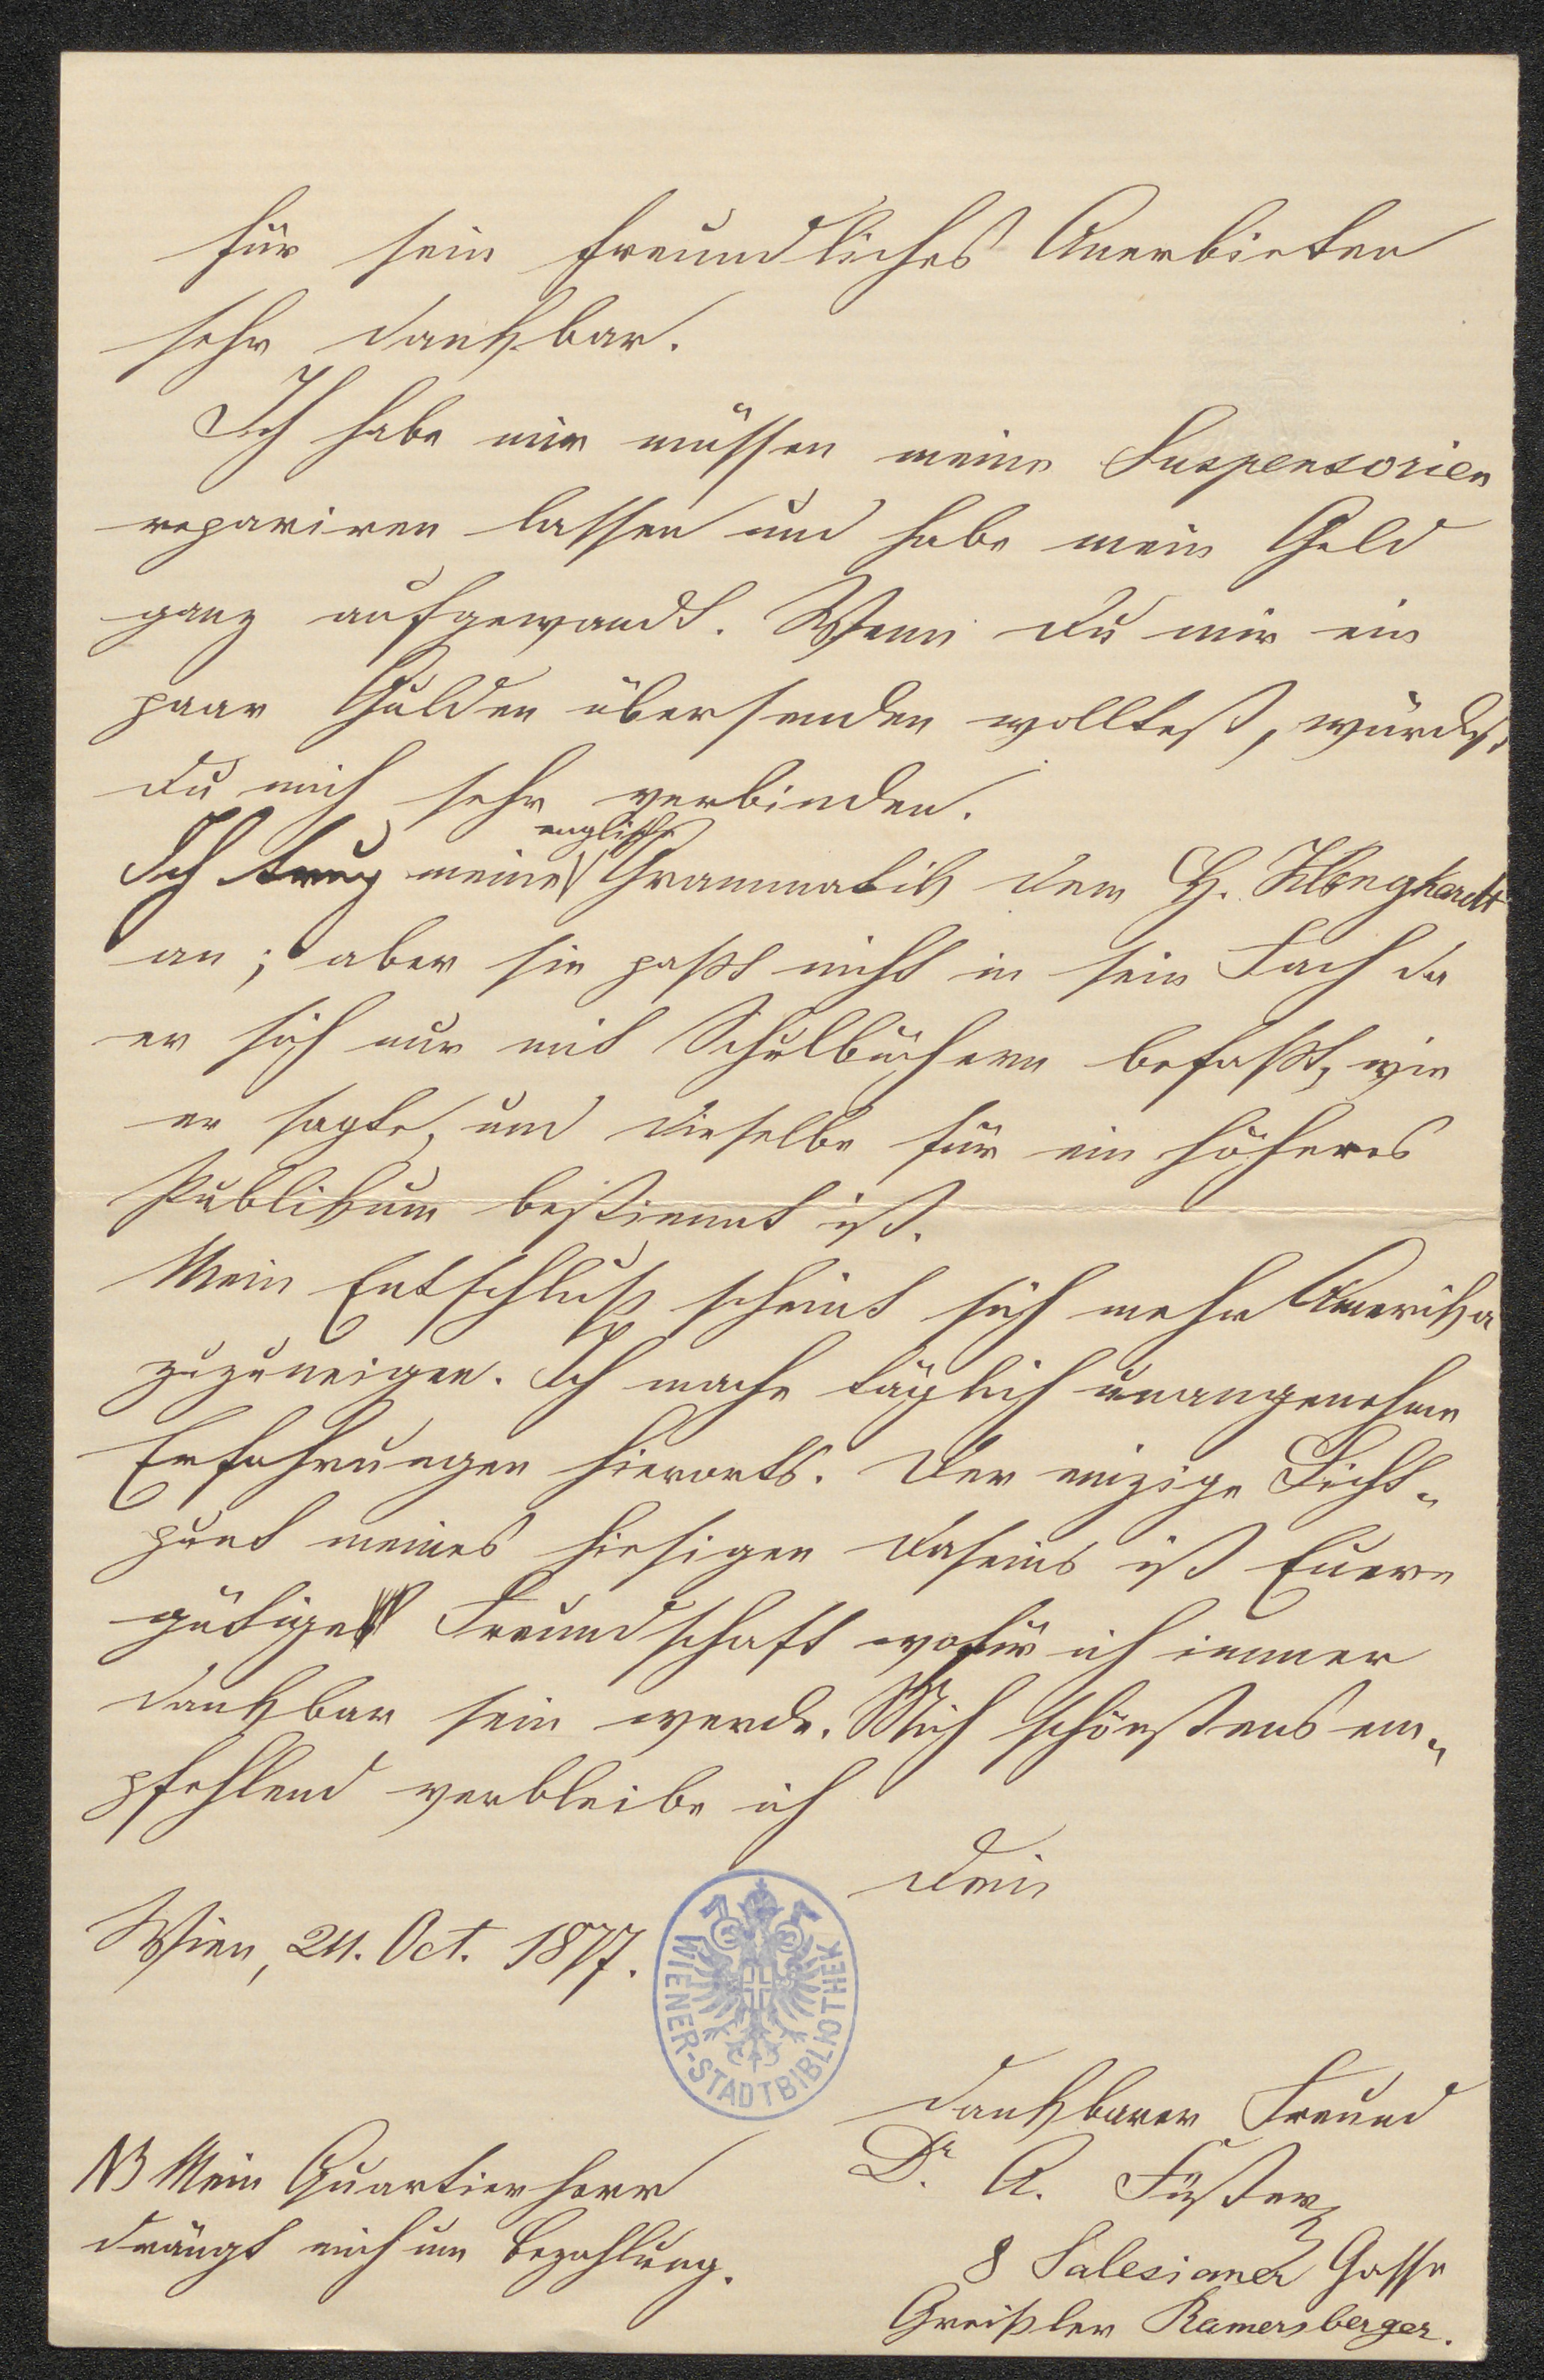 für sein freundliches Anerbieten
sehr dankbar.
Ich habe mir müssen meine Suspensorien
repariren lassen und habe mein Geld
ganz aufgewandt. Wenn du mir ein
paar Gulden übersenden wolltest, würdest
du mich sehr verbinden.
englische
Ich trug meine Grammatik dem H.
an; aber sie paßt nicht in sein Fach da
er sich nur mit Schulbüchern befaßt, wie
er sagte, und dieselbe für ein höheres
Publikum bestimmt ist.
Mein Entschluß scheint sich mehr Amerika
zuzuneigen. Ich mache täglich unangenehme
Erfahrungen hierorts. Der einzige Licht-
punt meines hiesigen Daseins ist Euere
gütige Freundschaft wofür ich immer
dankbar sein werde. Mich schönstens em-
pfehlend verbleibe ich
Dein
Wien, 24. Oct. 1877.
WIENER-STADTBIBLIOTHEK
dankbarer Freund
Dr. A. Füster
8 Salesianer Gasse
Greißler Ramersberger.
NB Mein Quartierherr
drängt mich um Bezahlung.